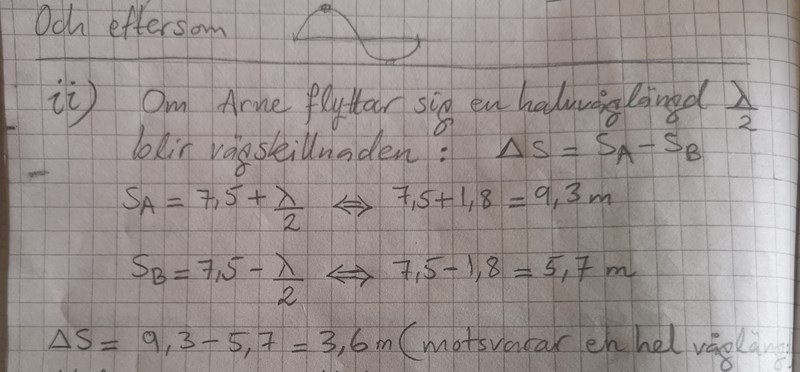 Och eftersom
ii) Om Arne flyttar sig en halvvåglängd λ/2
blir vägskillnaden : ΔS = S_A - S_B
S_A = 7,5 + λ/2 ⇔ 7,5+1,8 = 9,3 m
S_B = 7,5 - λ/2 ⇔ 7,5-1,8 = 5,7 m
ΔS = 9,3 - 5,7 = 3,6 m (motsvarar en hel vågläng